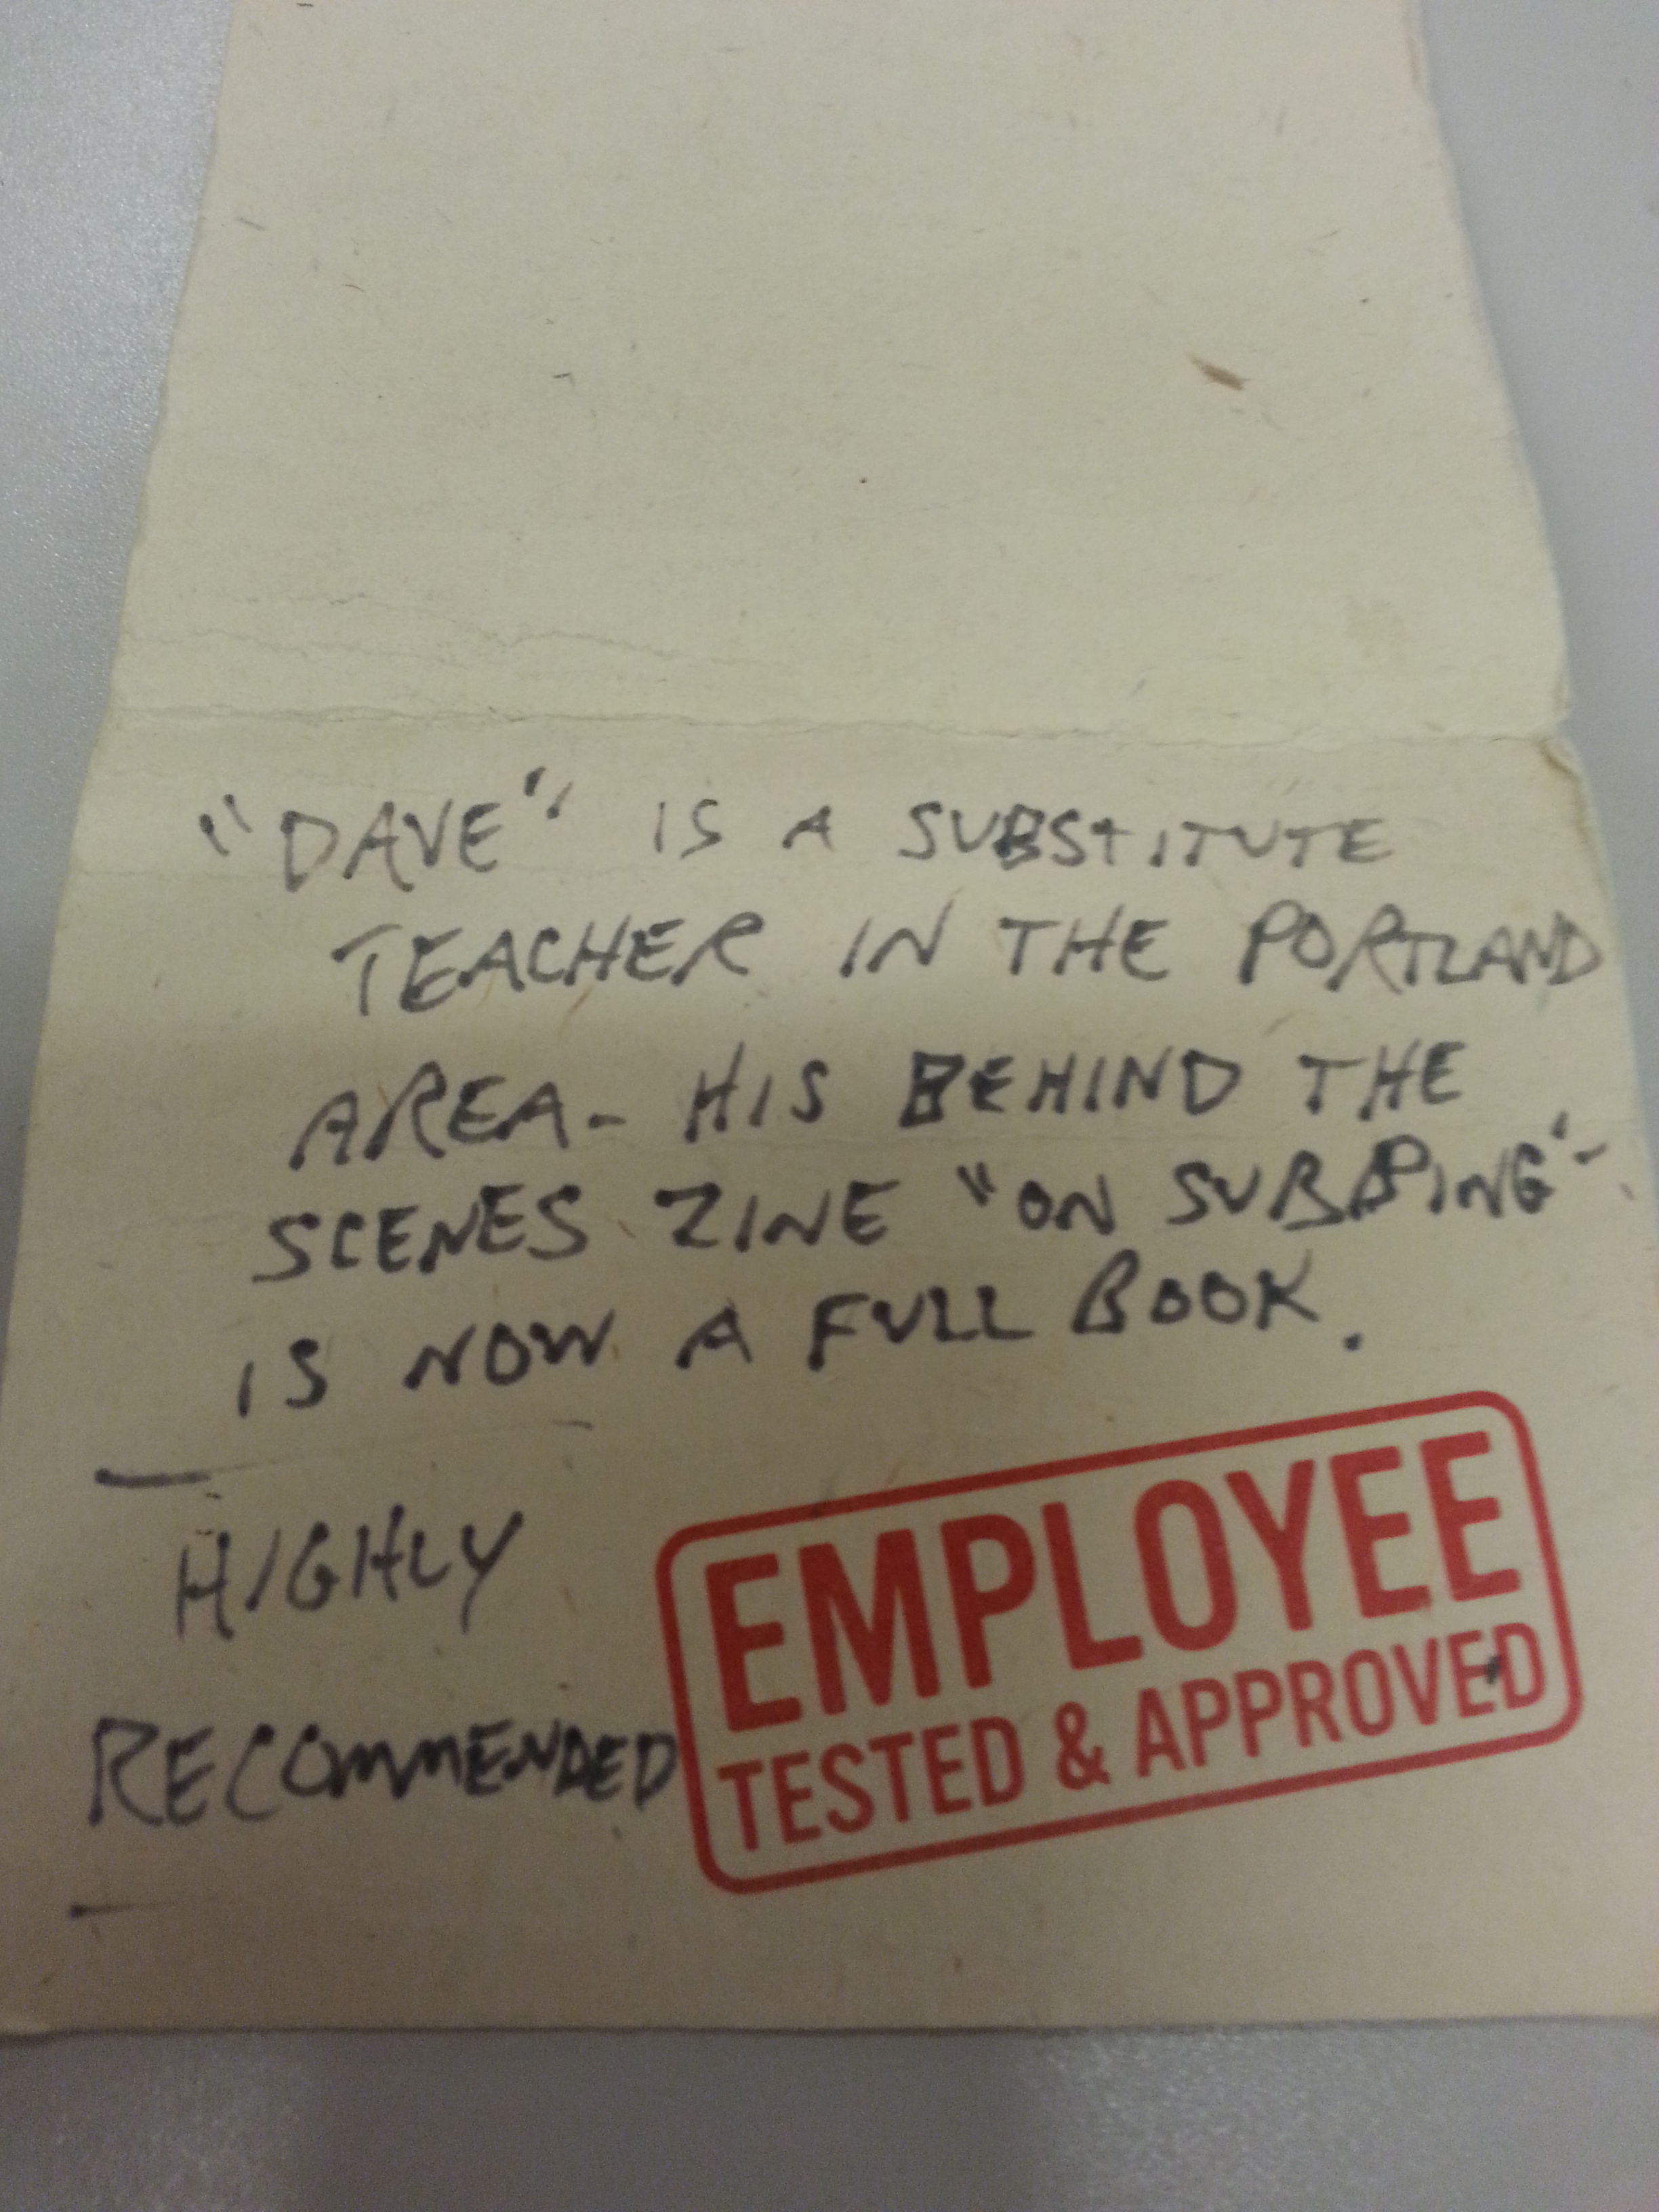 "DAVE" IS A SUBSTITUTE
TEACHER IN THE PORTLAND
AREA - HIS BEHIND THE
SCENES ZINE "ON SUBBING"
IS NOW A FULL BOOK.
HIGHLY
RECOMMENDED
EMPLOYEE
TESTED & APPROVED